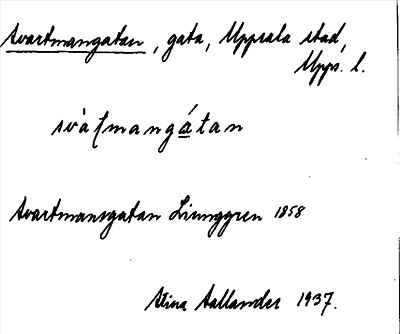 Svartmangatan, gata, Uppsala stad,
Upps. l.
svàʈmangátan
Svartmansgatan Liunggren 1858
Stina Sallander 1937.